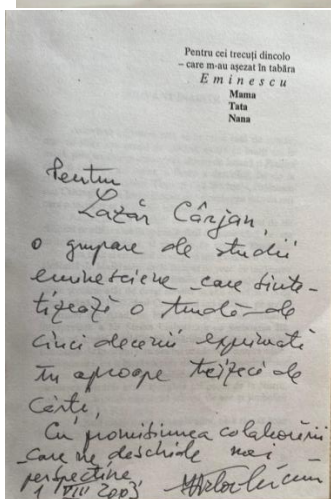 Pentru cei trecuți dincolo
– care m-au așezat în tabăra
Eminescu
Mama
Tata
Nana
Pentru
Lazăr Cârjan,
o grupare de studii
eminesciene care sinte-
tizează o trudă de
cinci decenii exprimată
în aproape treizeci de
cărți,
Cu promisiunea colaborării
care ne deschide noi
perspective
1 VIII 2003